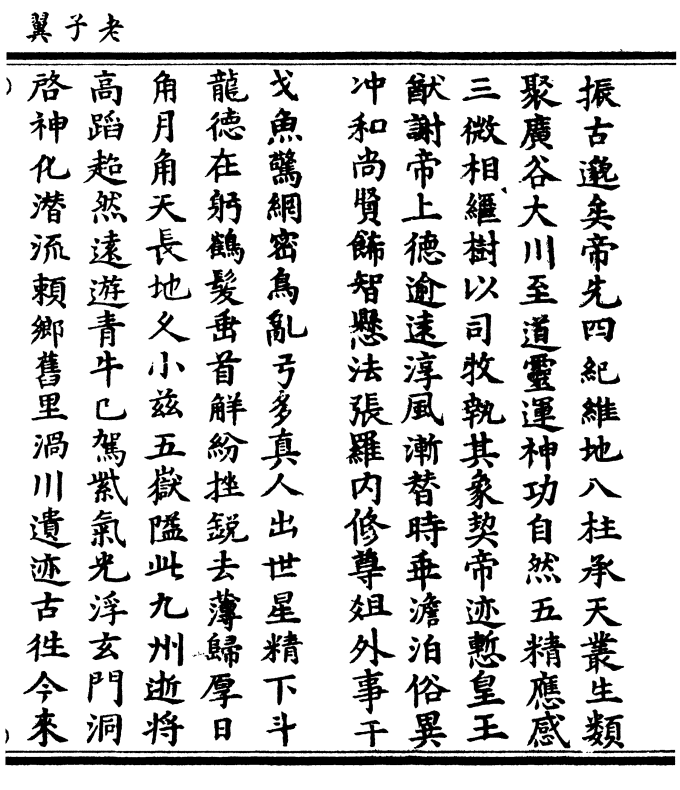 老子翼
振古邈矣帝先四紀維地八柱承天叢生類
聚廣谷大川至道靈運神功自然五精應感
三微相繼樹以司牧執其象契帝迹慙皇王
猷謝帝上德逾遠淳風漸替時乖澹泊俗異
冲和尚賢飾智懸法張羅内修尊俎外事干
戈魚驚網密鳥亂弓多真人出世星精下斗
龍德在躬鶴髮垂首解紛挫銳去薄歸厚日
角月角天長地久小兹五嶽隘此九州逝将
高蹈超然遠遊青牛已駕紫氣光浮玄門洞
啓神化潛流頼鄉舊里渦川遺迹古往今來